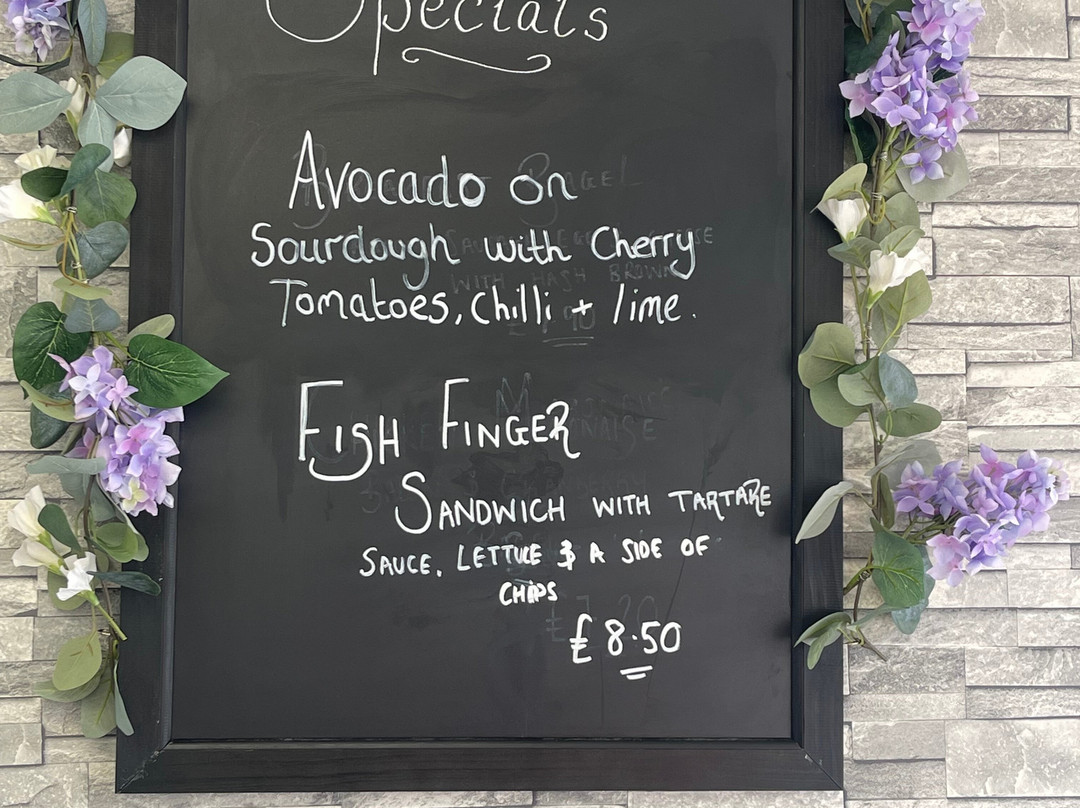 Specials
Avocado on
Sourdough with Cherry
Tomatoes, Chilli + lime.
FISH FINGER
SANDWICH WITH TARTARE
SAUCE, LETTUCE & A SIDE OF
CHIPS
£8.50